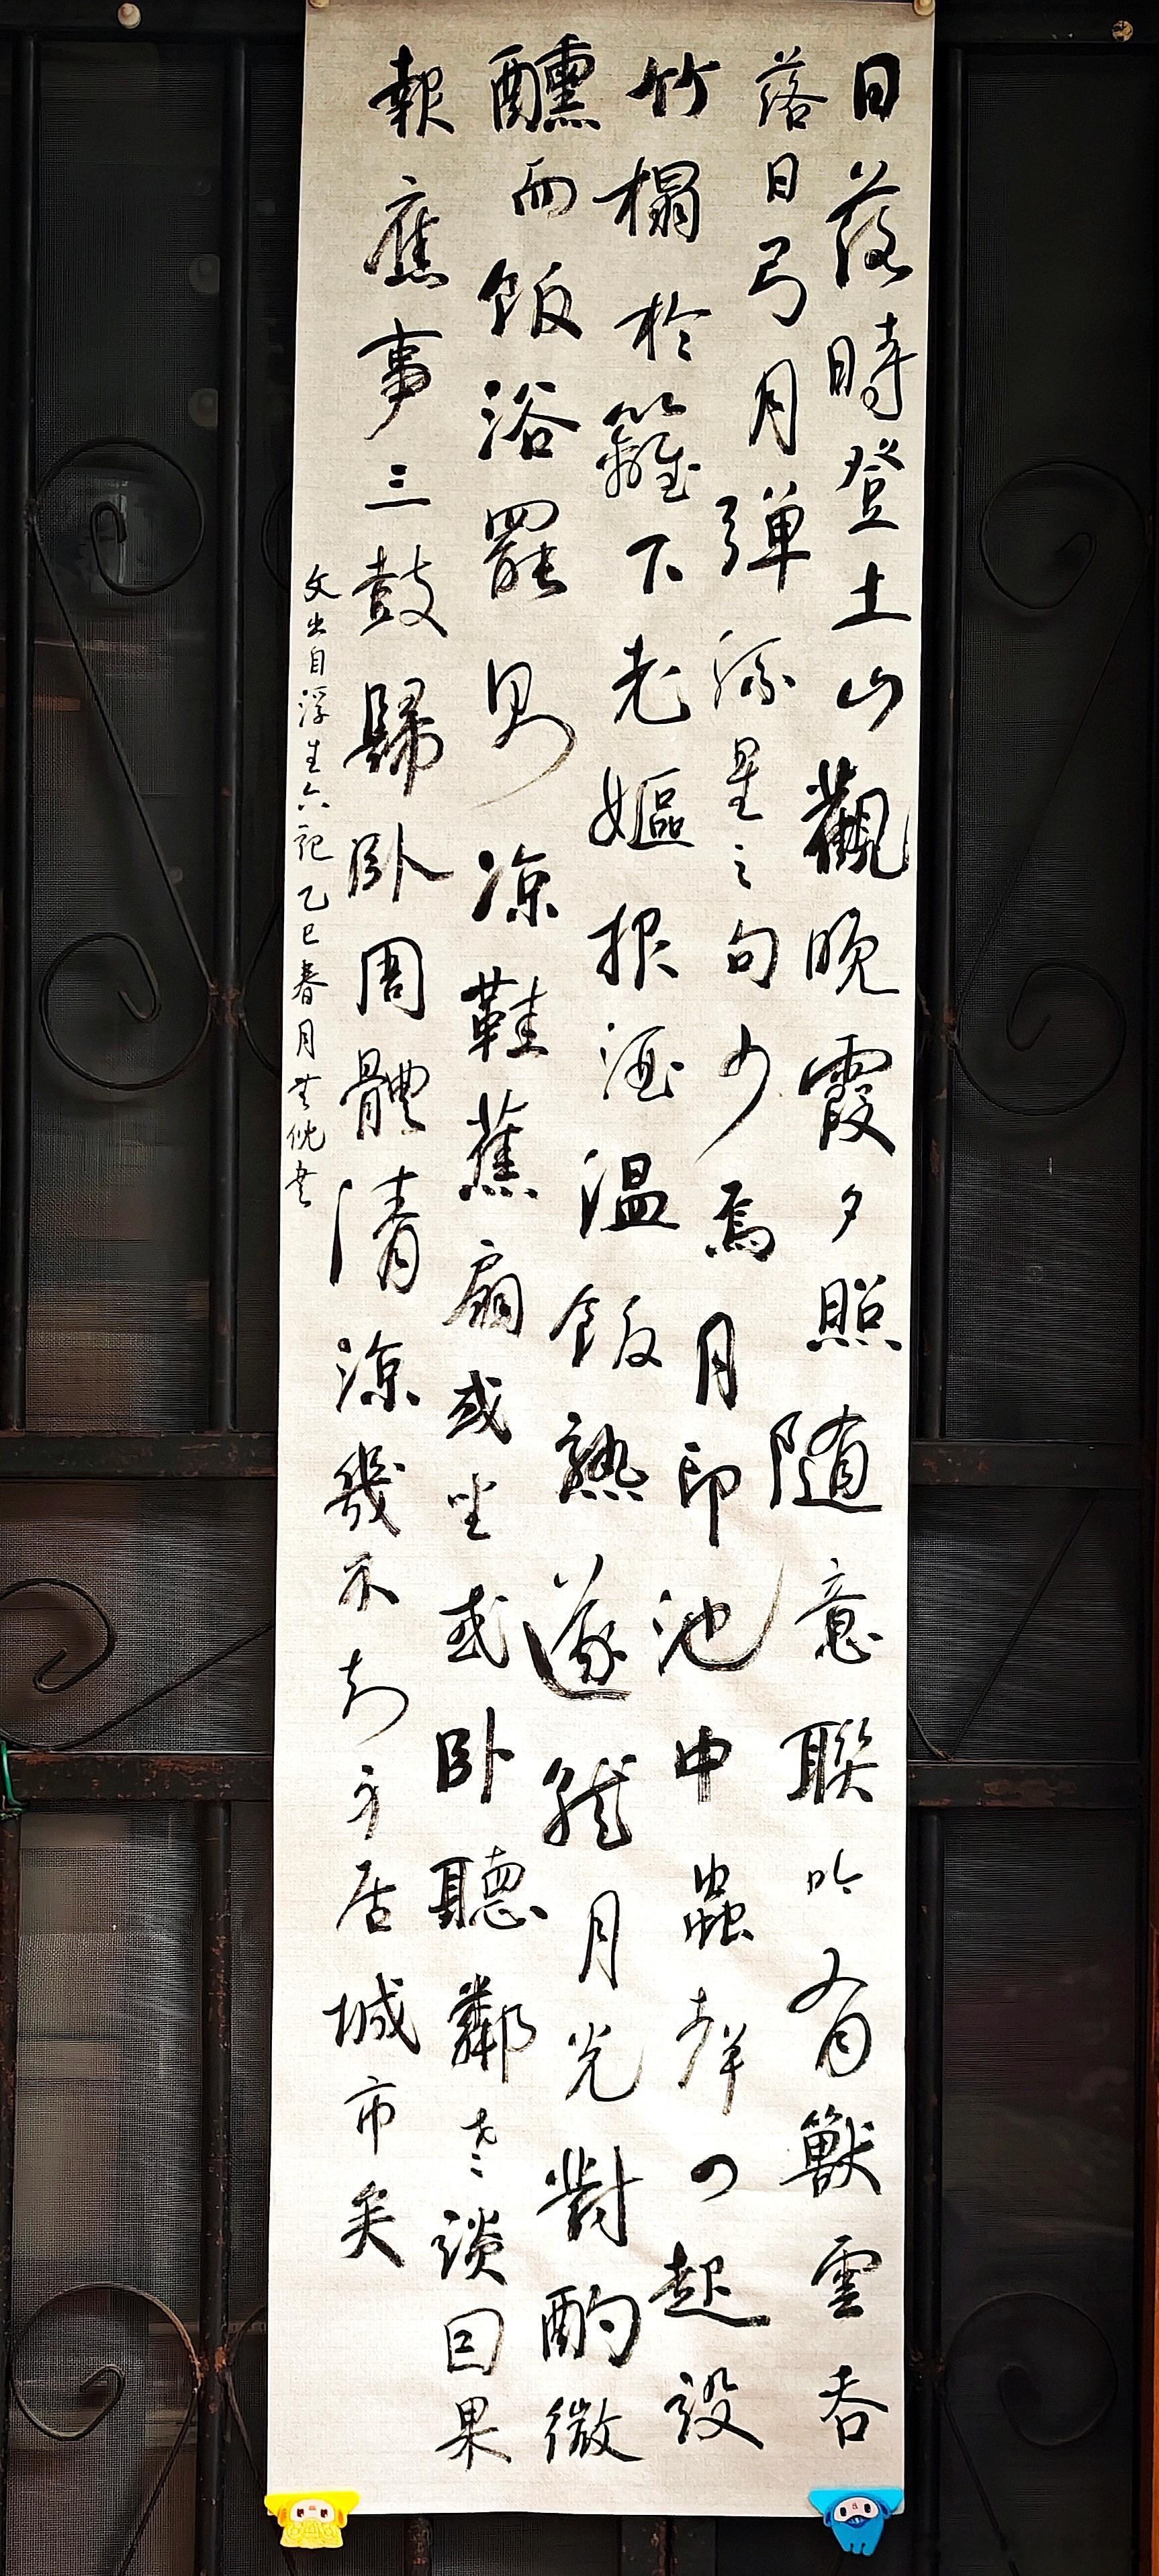 日落時登土山觀晚霞夕照随意聯吟有獸雲吞
落日弓月弹流星之句少焉月印池中蟲聲四起設
竹榻於籬下老嫗报酒温飯熟遂就月光對酌微
醺而飯浴罷則涼鞋蕉扇或坐或卧聽鄰老談因果
報應事三鼓歸卧周體清涼幾不知身居城市矣
文出自浮生六記乙巳春月書